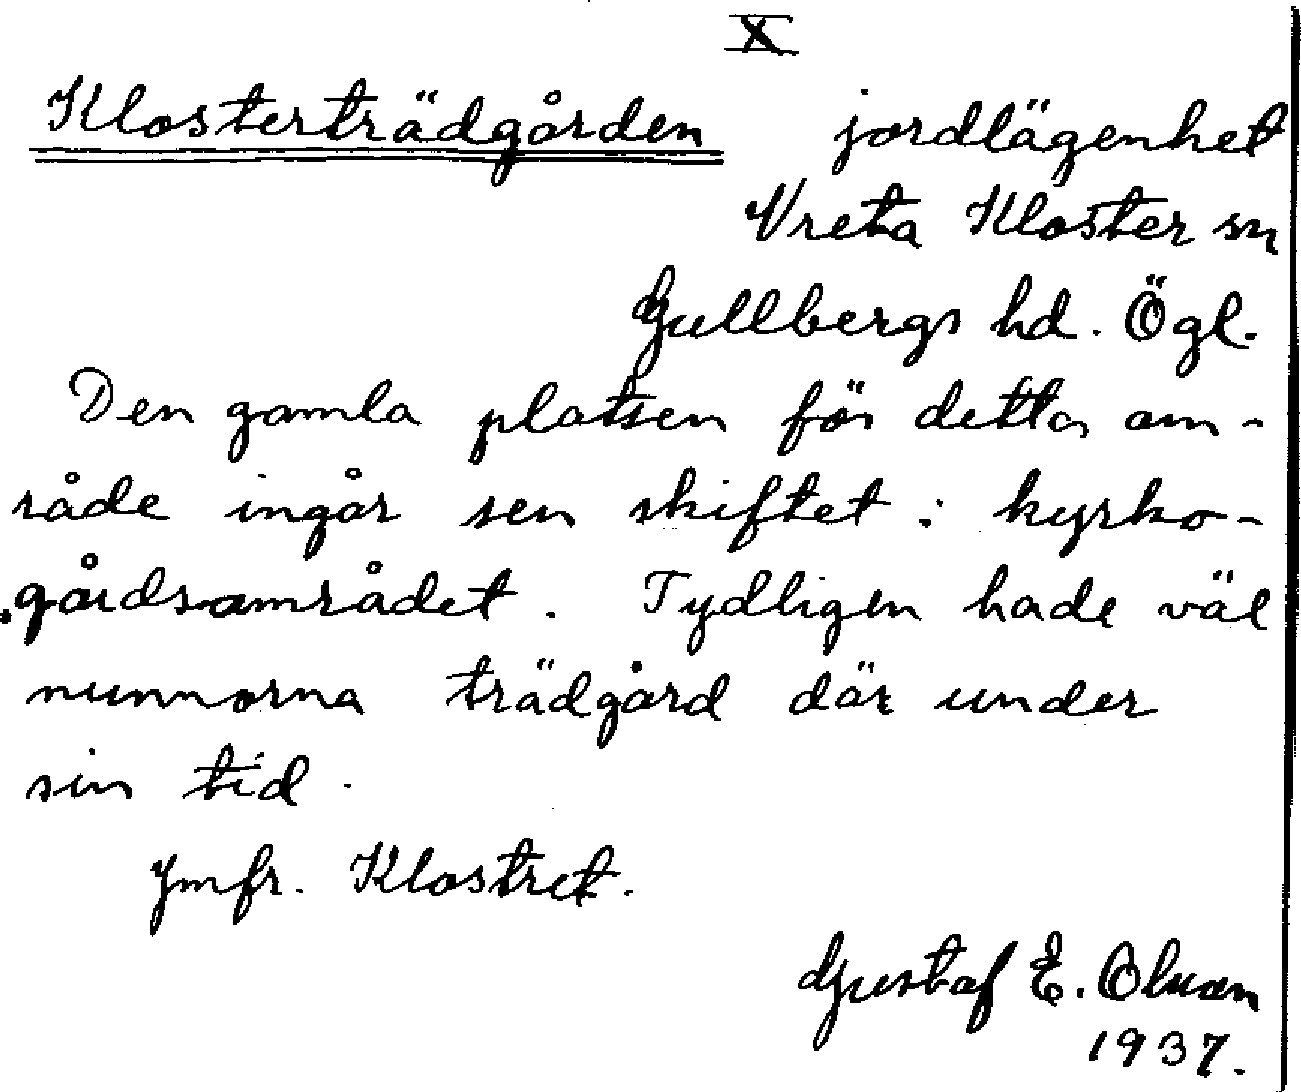 X
Klosterträdgården jordlägenhet
Vreta Kloster sn
Gullbergs hd. Ögl.
Den gamla platsen för detta om-
råde ingår sen skiftet i kyrko-
gårdsområdet. Tydligen hade väl
nunnorna trädgård där under
sin tid.
Jmfr. Klostret.
Gustaf E. Olsson
1937.